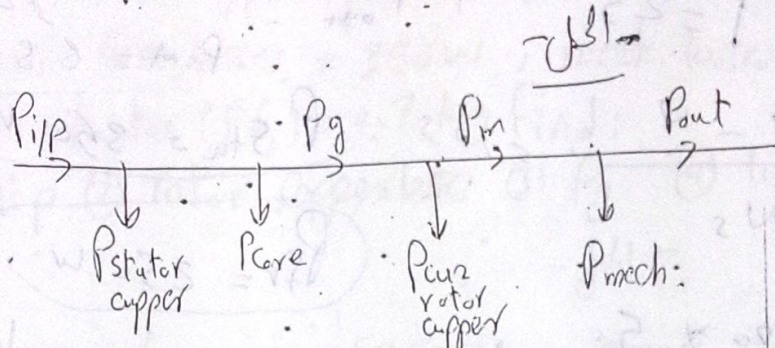 -الحل-
Pi/P Pg Pm Pout
Pstator
cupper
Pcore
Pcu2
rotor
cupper
Pmech: